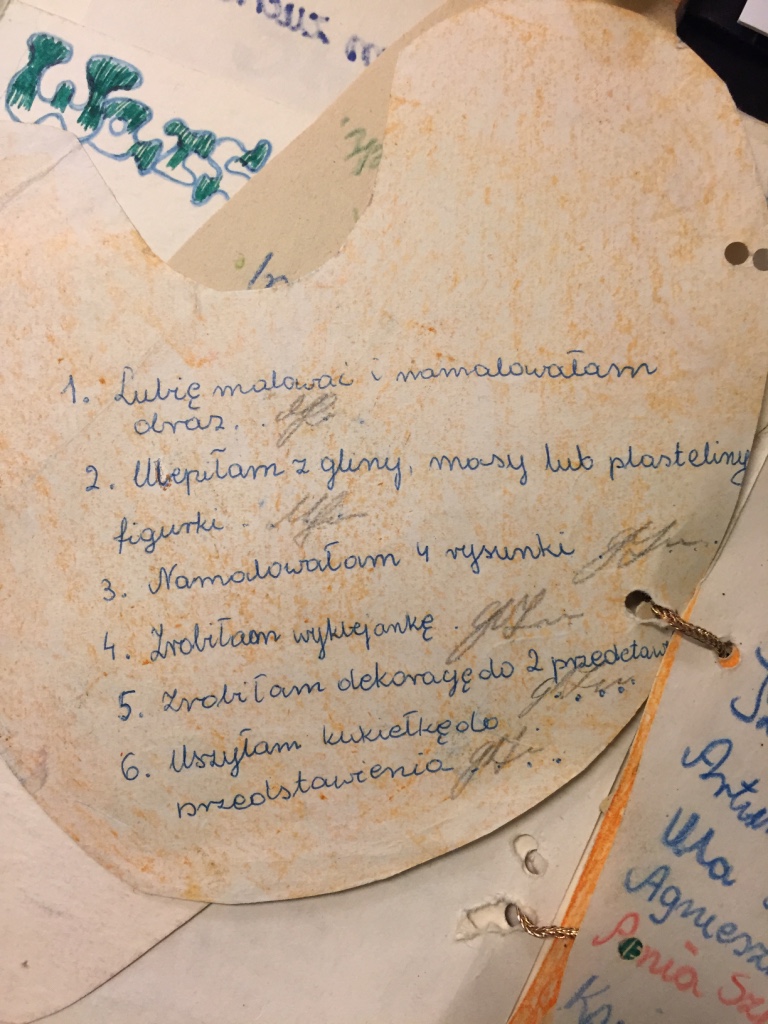 1. Lubię malować i namalowałam
obraz.
2. Ulepiłam z gliny, masy lub plasteliny
figurki
3. Namalowałam 4 rysunki
4. Zrobiłam wyklejankę
5. Zrobiłam dekorację do 2 przedstaw
6. Uszyłam kukiełkę do
przedstawienia
Artu
Ula
Agniesz
Ania Sz
Ka